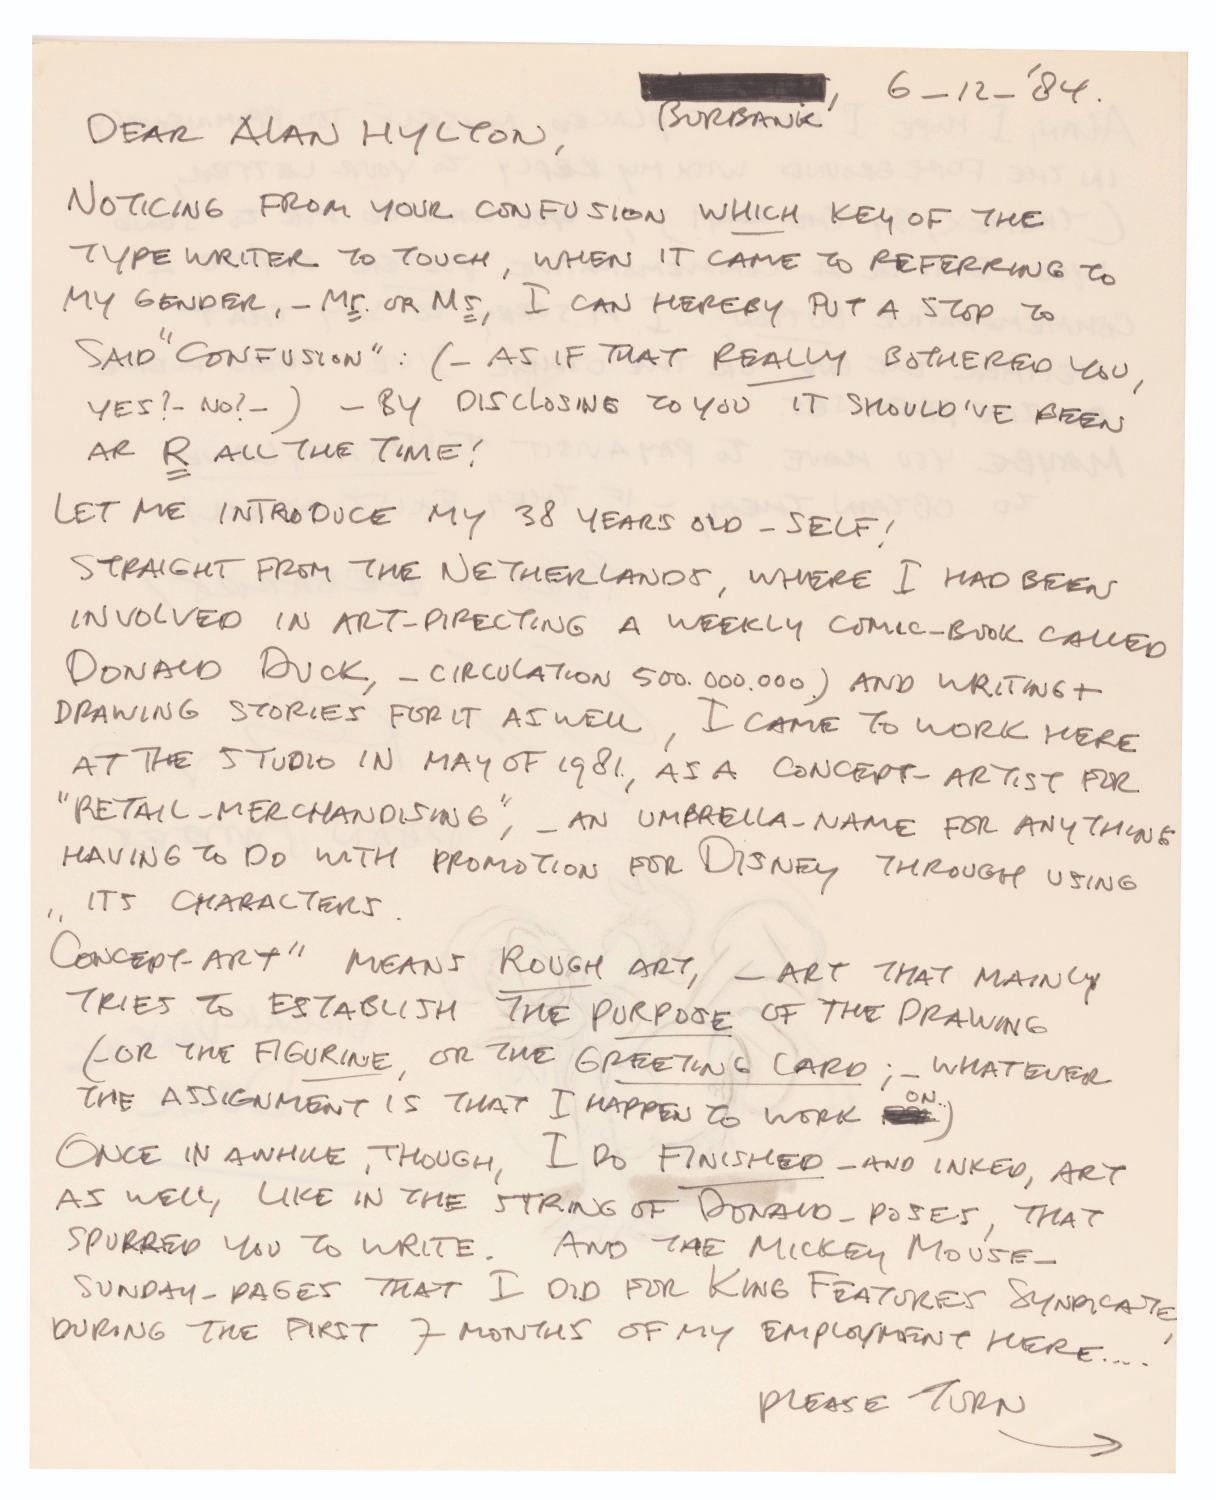 , 6-12-'84.
BURBANK
DEAR ALAN HYLTON,
NOTICING FROM YOUR CONFUSION WHICH KEY OF THE
TYPEWRITER TO TOUCH, WHEN IT CAME TO REFERRING TO
MY GENDER, - Mr. OR Ms, I CAN HEREBY PUT A STOP TO
SAID "CONFUSION": (- AS IF THAT REALLY BOTHERED YOU,
YES?- NO?-) - BY DISCLOSING TO YOU IT SHOULD'VE BEEN
AR R ALL THE TIME!
LET ME INTRODUCE MY 38 YEARS OLD - SELF!
STRAIGHT FROM THE NETHERLANDS, WHERE I HAD BEEN
INVOLVED IN ART-DIRECTING A WEEKLY COMIC-BOOK CALLED
DONALD DUCK, - CIRCULATION 500.000.000) AND WRITING +
DRAWING STORIES FOR IT AS WELL, I CAME TO WORK HERE
AT THE STUDIO IN MAY OF 1981, AS A CONCEPT- ARTIST FOR
"RETAIL-MERCHANDISING", - AN UMBRELLA-NAME FOR ANYTHING
HAVING TO DO WITH PROMOTION FOR DISNEY THROUGH USING
ITS CHARACTERS.
"CONCEPT-ART" MEANS ROUGH ART, - ART THAT MAINLY
TRIES TO ESTABLISH THE PURPOSE OF THE DRAWING
(-OR THE FIGURINE, OR THE GREETING CARD; - WHATEVER
THE ASSIGNMENT IS THAT I HAPPEN TO WORK ON.)
ONCE IN AWHILE, THOUGH, I DO FINISHED -AND INKED, ART
AS WELL, LIKE IN THE STRING OF DONALD-POSES, THAT
SPURRED YOU TO WRITE. AND THE MICKEY MOUSE-
SUNDAY-PAGES THAT I DID FOR KING FEATURES SYNDICATE,
DURING THE FIRST 7 MONTHS OF MY EMPLOYMENT HERE....
PLEASE TURN